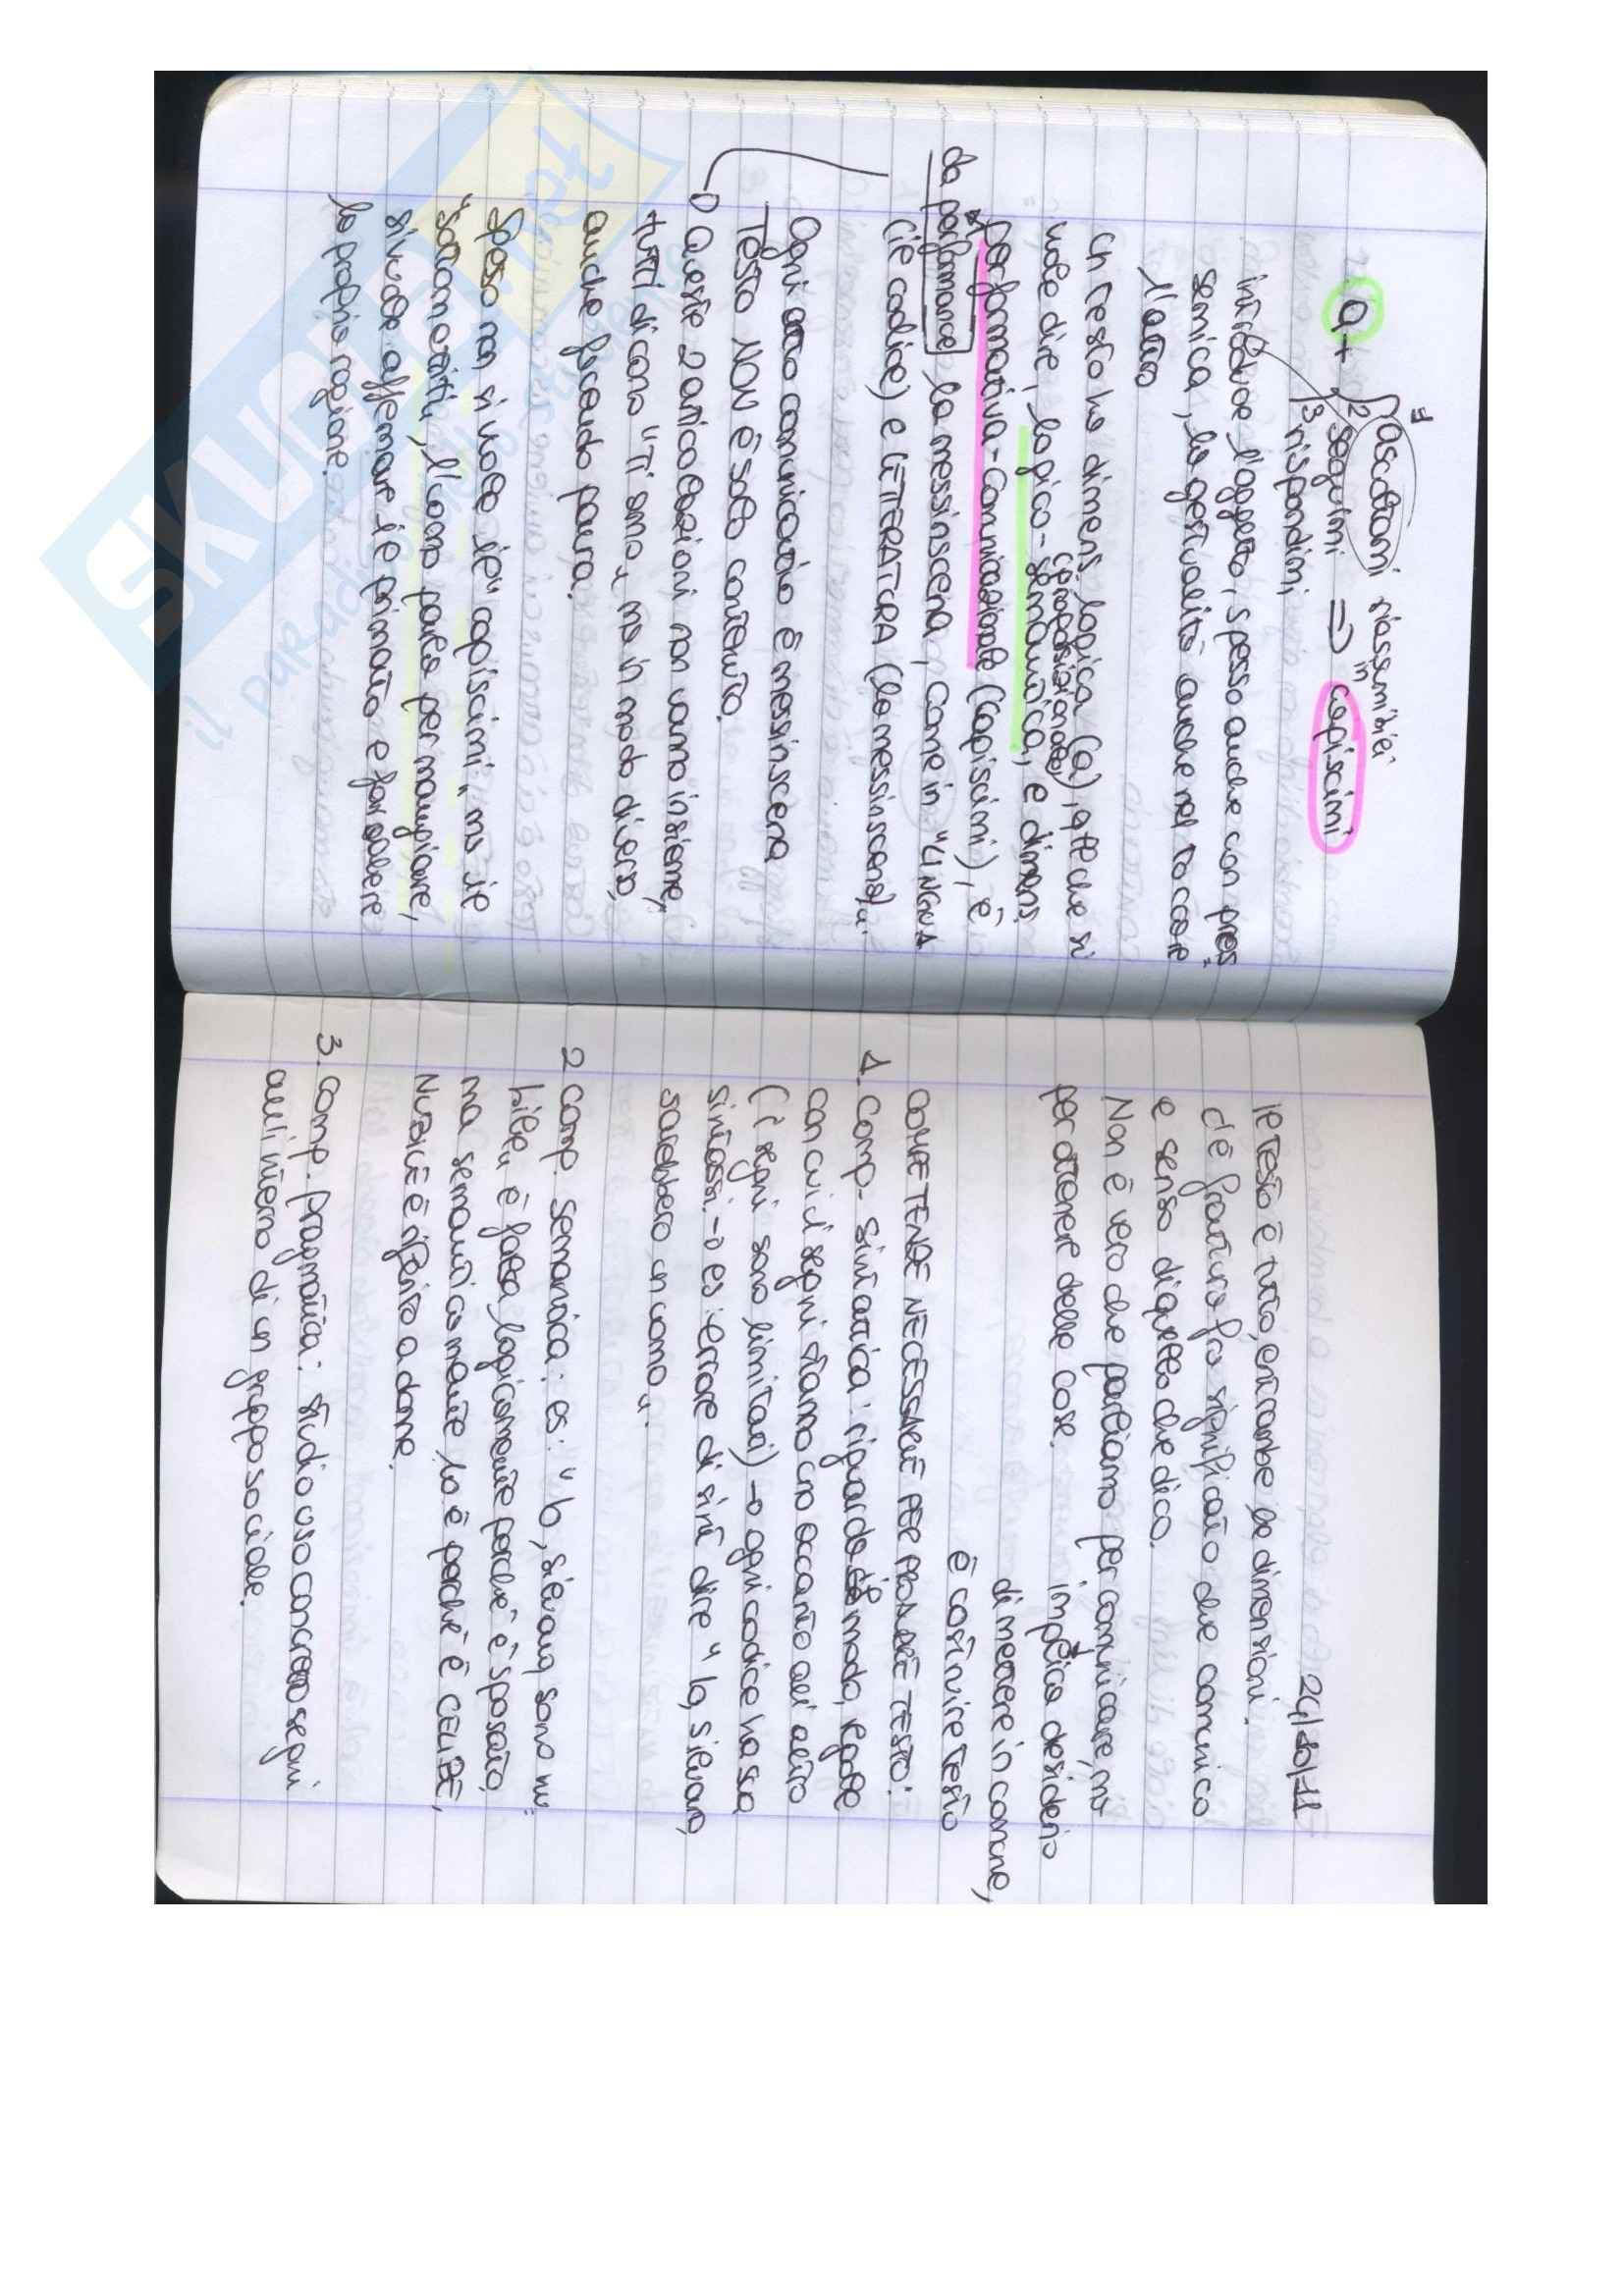 a + 1 ascoltami riassumibili
2 seguimi => in capiscimi
3 rispondimi
introduce l'oggetto, spesso anche con pros=
semica, la gestualità anche nel toccare
l'altro
Un testo ha dimens. logica (a), qlk che si
vuole dire, logico-semantica, e dimens.
(proposizionale)
performativa-comunicazionale (capiscimi), è
da performance la messinscena, come in "LINGUA
(il codice) e LETTERATURA (la messinscena)".
Ogni atto comunicativo è messinscena
Testo NON è solo contenuto.
Queste 2 articolazioni non vanno insieme,
tutti dicono "Ti amo" ma in modo diverso,
anche facendo paura.
Spesso non si vuole il "capiscimi" ma il
"sottomettiti", l'uomo parla per mangiare,
si vuole affermare il primato e far valere
la propria ragione.
24/10/11
Il testo è tutto, entrambe le dimensioni.
C'è frattura fra significato che comunico
e senso di quello che dico.
Non è vero che parliamo per comunicare, ma
per ottenere delle cose. implica desiderio
di mettere in comune,
è costruire testo
COMPETENZE NECESSARIE PER PRODURRE TESTO:
1. Comp. sintattica: riguarda il modo, regole
con cui i segni stanno uno accanto all'altro
(i segni sono limitati) → ogni codice ha sua
sintassi. → es: errore di sint dire "Io, Silvano,
sarebbero un uomo".
2 Comp. semantica: es: "Io, Silvano, sono nu=
bile" è falsa logicamente perché è sposato,
ma semanticamente lo è perché è CELIBE,
NUBILE è riferito a donne.
3. Comp. pragmatica: studio uso concreto segni
all'interno di un gruppo sociale.
SKUOLA.net
il paradiso dello studente